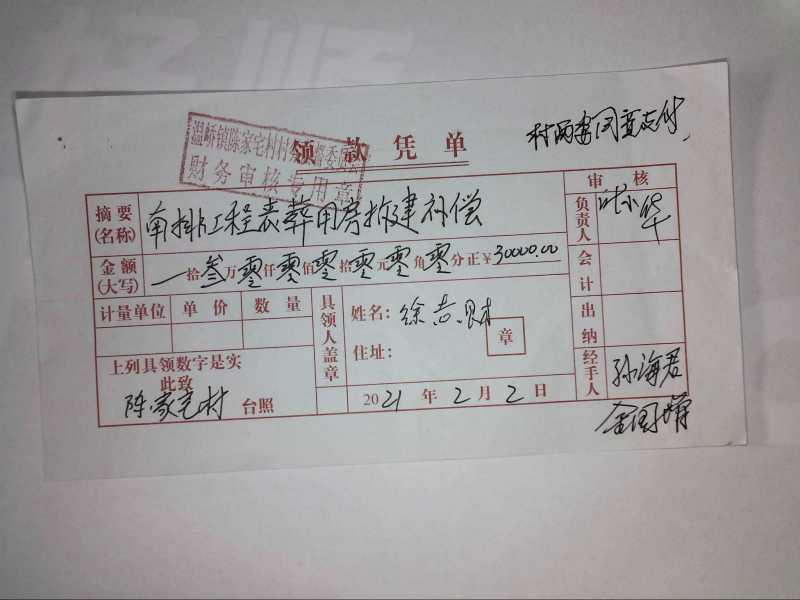 村两委同意支付
温峤镇陈家宅村村务监督委员会
财务审核专用章
领款凭单
摘要(名称) 南排工程丧葬用房拆建补偿
金额(大写) 一拾叁万零仟零佰零拾零元零角零分正¥30000.00
计量单位 单价 数量
具领人盖章
姓名:徐志财
住址:
章
上列具领数字是实
此致
陈家宅村 台照
2021年2月2日
审核
负责人
会计
出纳
经手人 孙海君